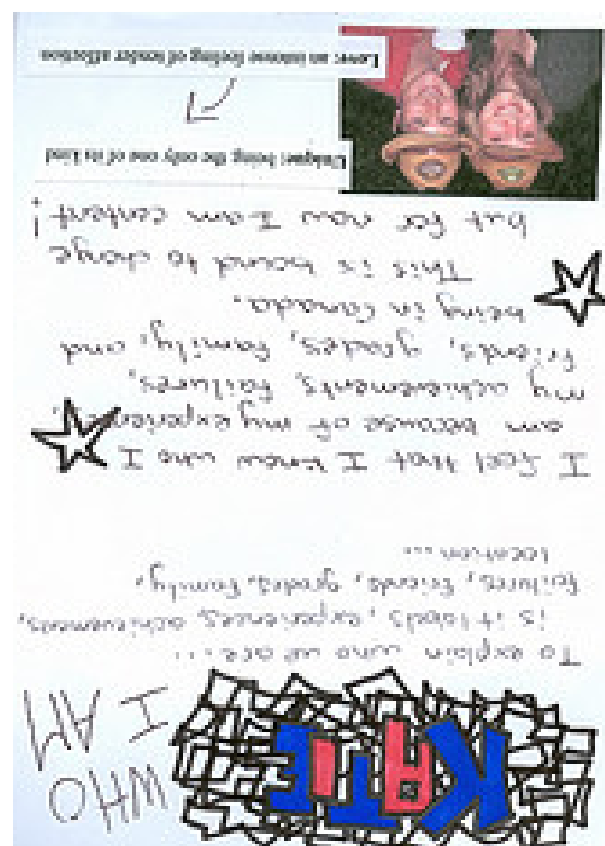 KATIE
WHO
I AM
To explain who we are....
is it labels, experiences, achievements,
failures, friends, grades, family,
location...
I feel that I know who I
am because of my experiences,
my achievements, failures,
friends, grades, family, and
being in Canada.
This is bound to change
but for now I am content!
Unique: being the only one of its kind
Love: an intense feeling of tender affection